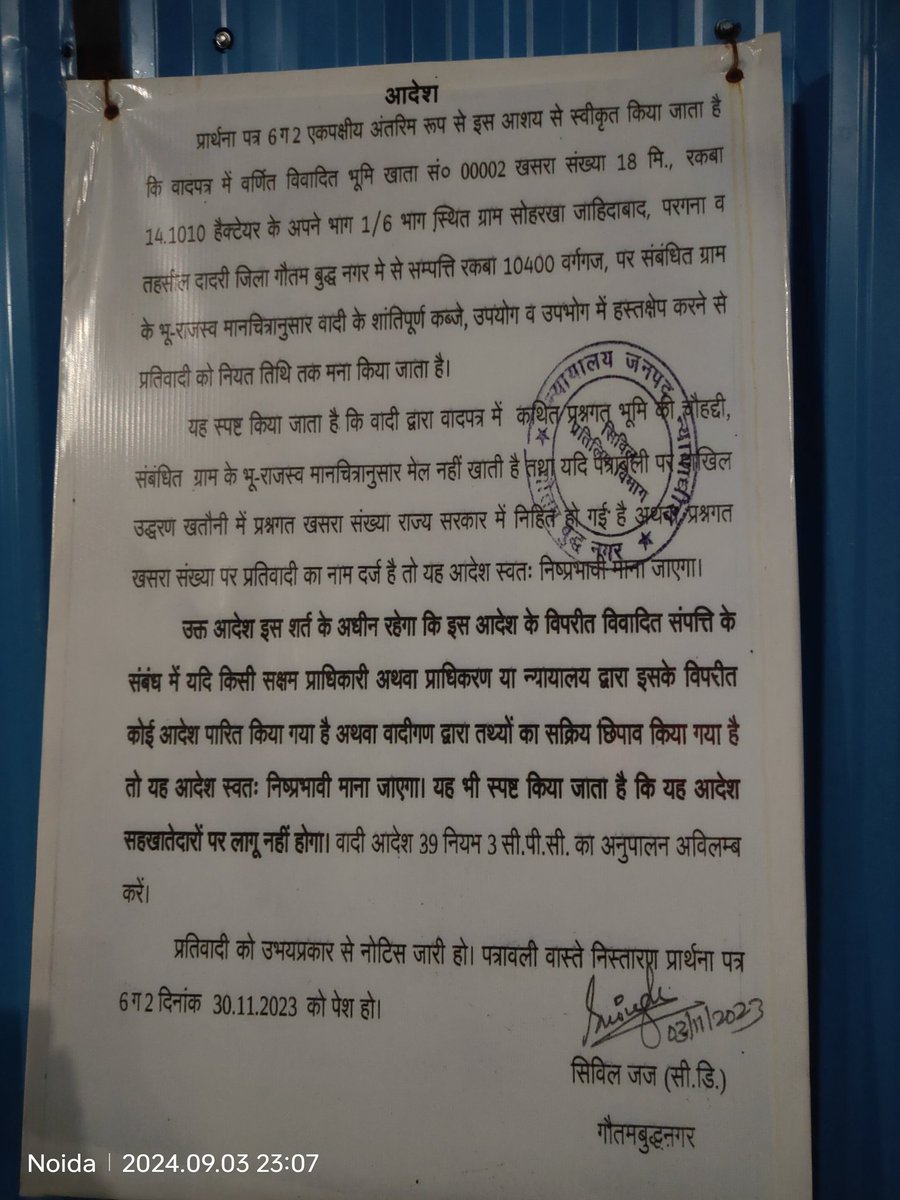 आदेश
प्रार्थना पत्र 6 ग 2 एकपक्षीय अंतरिम रूप से इस आशय से स्वीकृत किया जाता है
कि वादपत्र में वर्णित विवादित भूमि खाता सं० 00002 खसरा संख्या 18 मि., रकबा
14.1010 हैक्टेयर के अपने भाग 1/6 भाग स्थित ग्राम सोहरखा जाहिदाबाद, परगना व
तहसील दादरी जिला गौतम बुद्ध नगर मे से सम्पत्ति रकबा 10400 वर्गगज, पर संबंधित ग्राम
के भू-राजस्व मानचित्रानुसार वादी के शांतिपूर्ण कब्जे, उपयोग व उपभोग में हस्तक्षेप करने से
प्रतिवादी को नियत तिथि तक मना किया जाता है।
यह स्पष्ट किया जाता है कि वादी द्वारा वादपत्र में कथित प्रश्नगत भूमि की चौहद्दी,
संबंधित ग्राम के भू-राजस्व मानचित्रानुसार मेल नहीं खाती है तथा यदि पत्रावली पर दाखिल
उद्धरण खतौनी में प्रश्नगत खसरा संख्या राज्य सरकार में निहित हो गई है अथवा प्रश्नगत
खसरा संख्या पर प्रतिवादी का नाम दर्ज है तो यह आदेश स्वतः निष्प्रभावी माना जाएगा।
उक्त आदेश इस शर्त के अधीन रहेगा कि इस आदेश के विपरीत विवादित संपत्ति के
संबंध में यदि किसी सक्षम प्राधिकारी अथवा प्राधिकरण या न्यायालय द्वारा इसके विपरीत
कोई आदेश पारित किया गया है अथवा वादीगण द्वारा तथ्यों का सक्रिय छिपाव किया गया है
तो यह आदेश स्वतः निष्प्रभावी माना जाएगा। यह भी स्पष्ट किया जाता है कि यह आदेश
सहखातेदारों पर लागू नहीं होगा। वादी आदेश 39 नियम 3 सी.पी.सी. का अनुपालन अविलम्ब
करें।
प्रतिवादी को उभयप्रकार से नोटिस जारी हो। पत्रावली वास्ते निस्तारण प्रार्थना पत्र
6 ग 2 दिनांक 30.11.2023 को पेश हो।
03/11/2023
सिविल जज (सी.डि.)
गौतमबुद्धनगर
न्यायालय जनपद न्यायाधीश
बुद्ध नगर
सिविल
प्रतिलिपि विभाग
Noida 2024.09.03 23:07